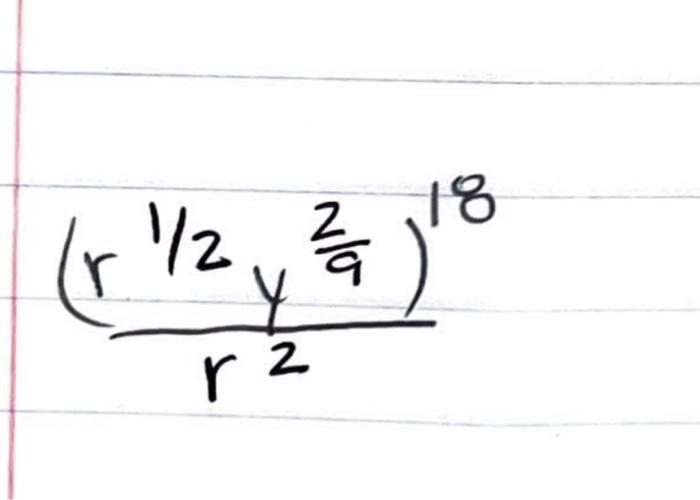 (r^{1/2} y^{\frac{2}{9}})^{18}
r^2